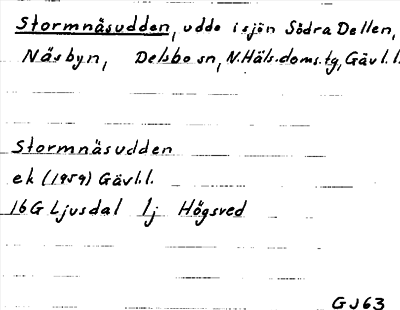 Stormnäsudden, udde i sjön Södra Dellen,
Näsbyn, Delsbo sn, N.Häls.doms.tg, Gävl.l.
Stormnäsudden
ek (1959) Gävl.l.
16G Ljusdal 1j Högsved
GJ63